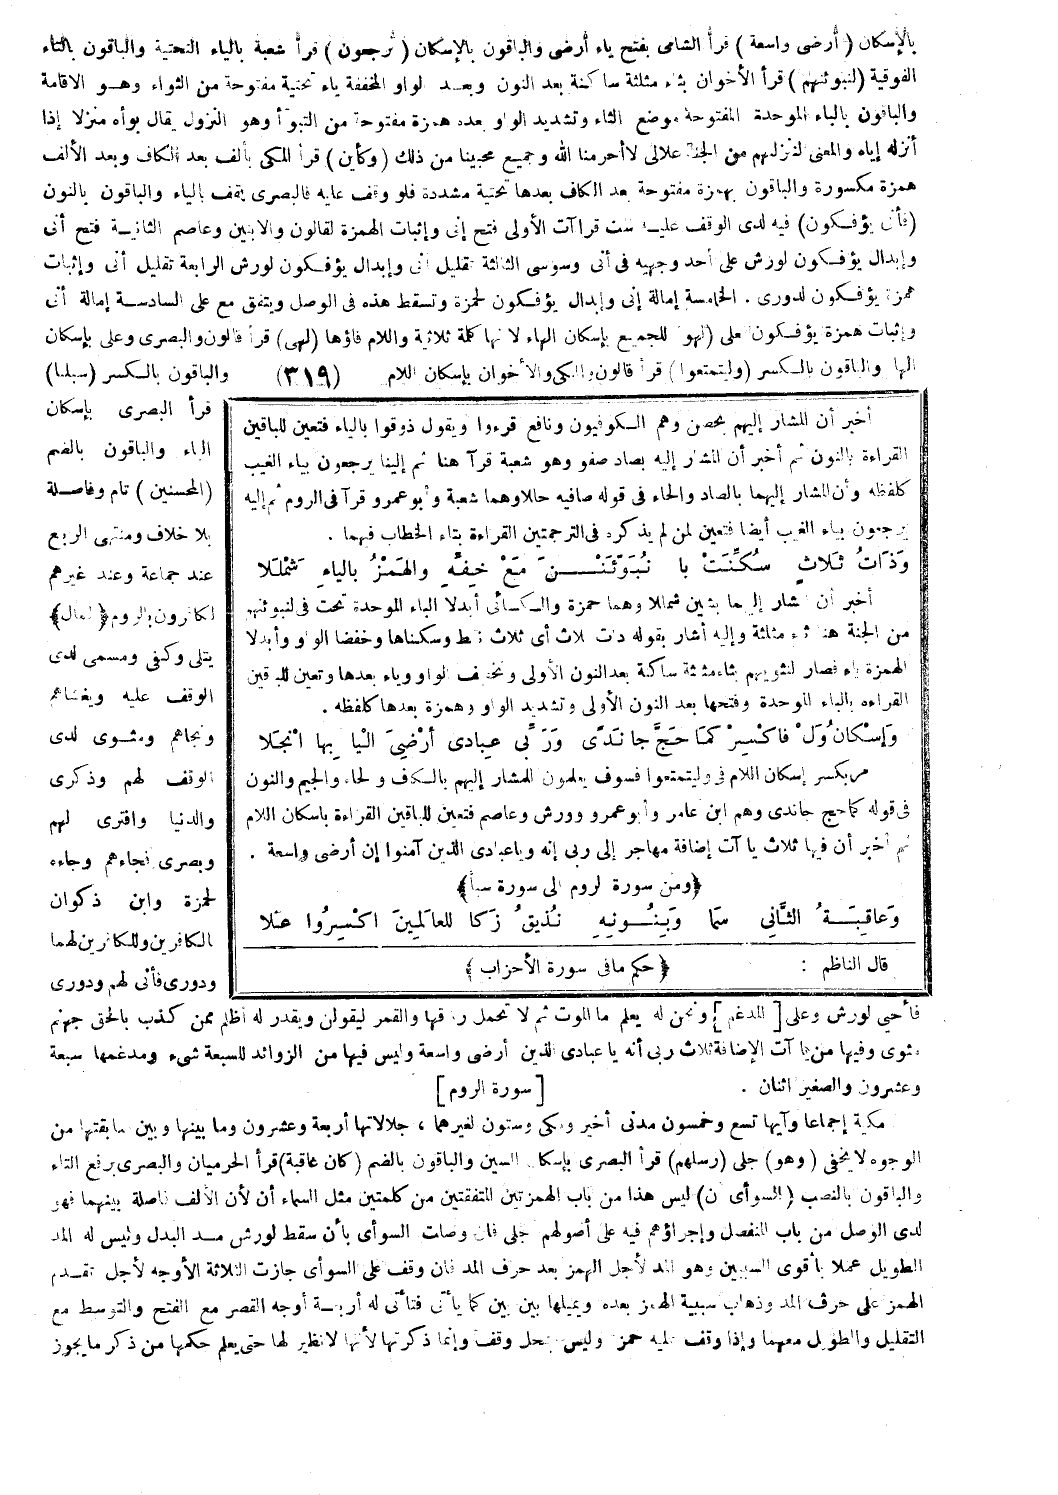 بالإسكان (أرضى واسعة) قرأ الشامى بفتح ياء أرضى والباقون بالإسكان (ترجعون) قرأ شعبة بالياء التحتية والباقون بالتاء
الفوقية (لنبوئنهم) قرأ الأخوان بثاء مثلثة ساكنة بعد النون وبعد الواو المخففة ياء تحتية مفتوحة من الثواء وهو الاقامة
والباقون بالباء الموحدة المفتوحة موضع الثاء وتشديد الواو بعده همزة مفتوحة من التبوّأ وهو النزول يقال بوأه منزلا إذا
أنزله إياه والمعنى لنزلهم من الجنة علالى لاأحرمنا الله وجميع محبينا من ذلك (وكأين) قرأ المكى بألف بعد الكاف وبعد الألف
همزة مكسورة والباقون بهمزة مفتوحة بعد الكاف بعدها تحتية مشددة فلو وقف عليه فالبصرى يقف بالياء والباقون بالنون
(فأنى يؤفكون) فيه لدى الوقف عليه ست قراآت الأولى فتح إنى وإثبات الهمزة لقالون والابنين وعاصم الثانية فتح أنى
وإبدال يؤفكون لورش على أحد وجهيه فى أنى وسوسى الثالثة تقليل أنى وإبدال يؤفكون لورش الرابعة تقليل أنى وإثبات
همزة يؤفكون لدورى . الخامسة إمالة إنى وإبدال يؤفكون لحمزة وتسقط هذه فى الوصل ويتفق مع على السادسة إمالة أنى
وإثبات همزة يؤفكون لعلى (لهو) للجميع بإسكان الهاء لانها كلمة ثلاثية واللام فاؤها (لهى) قرأ قالون والبصرى وعلى بإسكان
الها والباقون بالكسر (وليتمتعوا) قرأ قالون والمكى والأخوان بإسكان اللام (٣١٩) والباقون بالكسر (سبلنا)
قرأ البصرى بإسكان
الباء والباقون بالضم
(المحسنين) تام وفاصلة
بلا خلاف ومنتهى الربع
عند جماعة وعند غيرهم
لكافرون بالروم ﴿الممال﴾
يتلى وكفى ومسمى لدى
الوقف عليه ويغشاهم
ونجاهم ومثوى لدى
الوقف لهم وذكرى
والدنيا وافترى لهم
وبصرى فجاءهم وجاءه
لحمزة وابن ذكوان
الكافرين وللكافرين لهما
ودورى فأنى لهم ودورى
أخبر أن المشار إليهم بحصن وهم الكوفيون ونافع قرءوا ويقول ذوقوا بالياء فتعين للباقين
القراءة بالنون ثم أخبر أن المشار إليه بصاد صفو وهو شعبة قرأ هنا ثم إلينا يرجعون بياء الغيب
كلفظه وأن المشار إليهما بالصاد والحاء فى قوله صافيه حللا وهما شعبة وأبو عمرو قرآ فى الروم ثم إليه
يرجعون بياء الغيب أيضا فتعين لمن لم يذكره فى الترجمتين القراءة بتاء الخطاب فيهما .
وَذَاتُ ثَلَاثٍ سُكِّنَتْ بَا نُبَوِّئَنْـنَ مَعْ خِفِّهِ وَالهَمْزُ بالياءِ شَمْلَلا
أخبر أن المشار إليهما بشين شمللا وهما حمزة والكسائى أبدلا الباء الموحدة تحت فى لنبوئنهم
من الجنة هنا ثاء مثلثة وإليه أشار بقوله ذات ثلاث أى ثلاث نقط وسكناها وخففا الواو وأبدلا
الهمزة ياء فصار لنثوينهم بثاء مثلثة ساكنة بعد النون الأولى وتخفيف الواو وياء بعدها وتعين للباقين
القراءه بالباء الموحدة وفتحها بعد النون الأولى وتشديد الواو وهمزة بعدها كلفظه .
وَإسْكانُ وَلْ فاكْسِرْ كمَا حَجَّ جا نَدًى وَرَبِّى عِبادى أرْضِىَ اليَا بِها انْجَلا
أمر بكسر إسكان اللام فى وليتمتعوا فسوف يعلمون للمشار إليهم بالكاف والحاء والجيم والنون
فى قوله كما حج جاندى وهم ابن عامر وأبو عمرو وورش وعاصم فتعين للباقين القراءة باسكان اللام
ثم أخبر أن فيها ثلاث يا آت إضافة مهاجر إلى ربى إنه وياعبادى الذين آمنوا إن أرضى واسعة .
﴿ومن سورة الروم الى سورة سبأ﴾
وَعاقِبَةُ الثَّانِى سَمَا وَبِنُونِهِ نُذيقُ زَكَا لِلعالَمِينَ اكْسِرُوا عُلَا
قال الناظم : ﴿حكم مافى سورة الأحزاب﴾
فأحيى لورش وعلى [المدغم] ونحن له يعلم ما الموت ثم لا تحمل رزقها والقمر ليقولن ويقدر له أظلم ممن كذب بالحق جهنم
مثوى وفيها من يا آت الإضافة ثلاث ربى أنه يا عبادى الذين أرضى واسعة وليس فيها من الزوائد للسبعة شىء ومدغمها سبعة
وعشرون والصغير اثنان . [سورة الروم]
مكية إجماعا وآيها تسع وخمسون مدنى أخير ومكى وستون لغيرهما ، جلالاتها أربعة وعشرون وما بينها وبين سابقتها من
الوجوه لايخفى (وهو) جلى (رسلهم) قرأ البصرى بإسكان السين والباقون بالضم (كان عاقبة) قرأ الحرميان والبصرى برفع التاء
والباقون بالنصب (السوأى أن) ليس هذا من باب الهمزتين المتفقتين من كلمتين مثل السماء أن لأن الألف فاصلة بينهما فهو
لدى الوصل من باب المنفصل وإجراؤهم فيه على أصولهم جلى فان وصلت السوأى بأن سقط لورش مد البدل وليس له المد
الطويل عملا بأقوى السببين وهو المد لأجل الهمز بعد حرف المد فان وقف على السوأى جازت الثلاثة الأوجه لأجل تقدم
الهمز على حرف المد وذهاب سببية الهمز بعده ويميلها بين بين كما يأتى فتأتى له أربعة أوجه القصر مع الفتح والتوسط مع
التقليل والطويل معهما وإذا وقف عليه حمزة وليس بمحل وقف وإنما ذكرتها لأنها لانظير لها حتى يعلم حكمها من ذكر ما يجوز